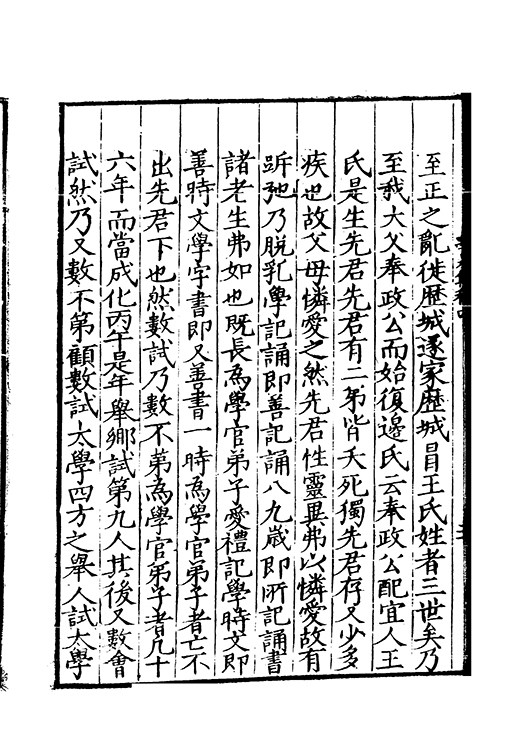 至正之亂徙歷城遂家歷城冒王氏姓者三世矣乃
至我大父奉政公而始復邊氏云奉政公配宜人王
氏是生先君先君有二弟皆夭死獨先君存又少多
疾也故父母憐愛之然先君性靈異弗以憐愛故有
跅弛乃脫乳學記誦即善記誦八九歲即所記誦書
諸老生弗如也既長為學官弟子愛禮記學時文即
善時文學字書即又善書一時為學官弟子者亡不
出先君下也然數試乃數不第為學官弟子者凡十
六年而當成化丙午是年舉鄉試第九人其後又數會
試然乃又數不第顧數試太學四方之舉人試太學